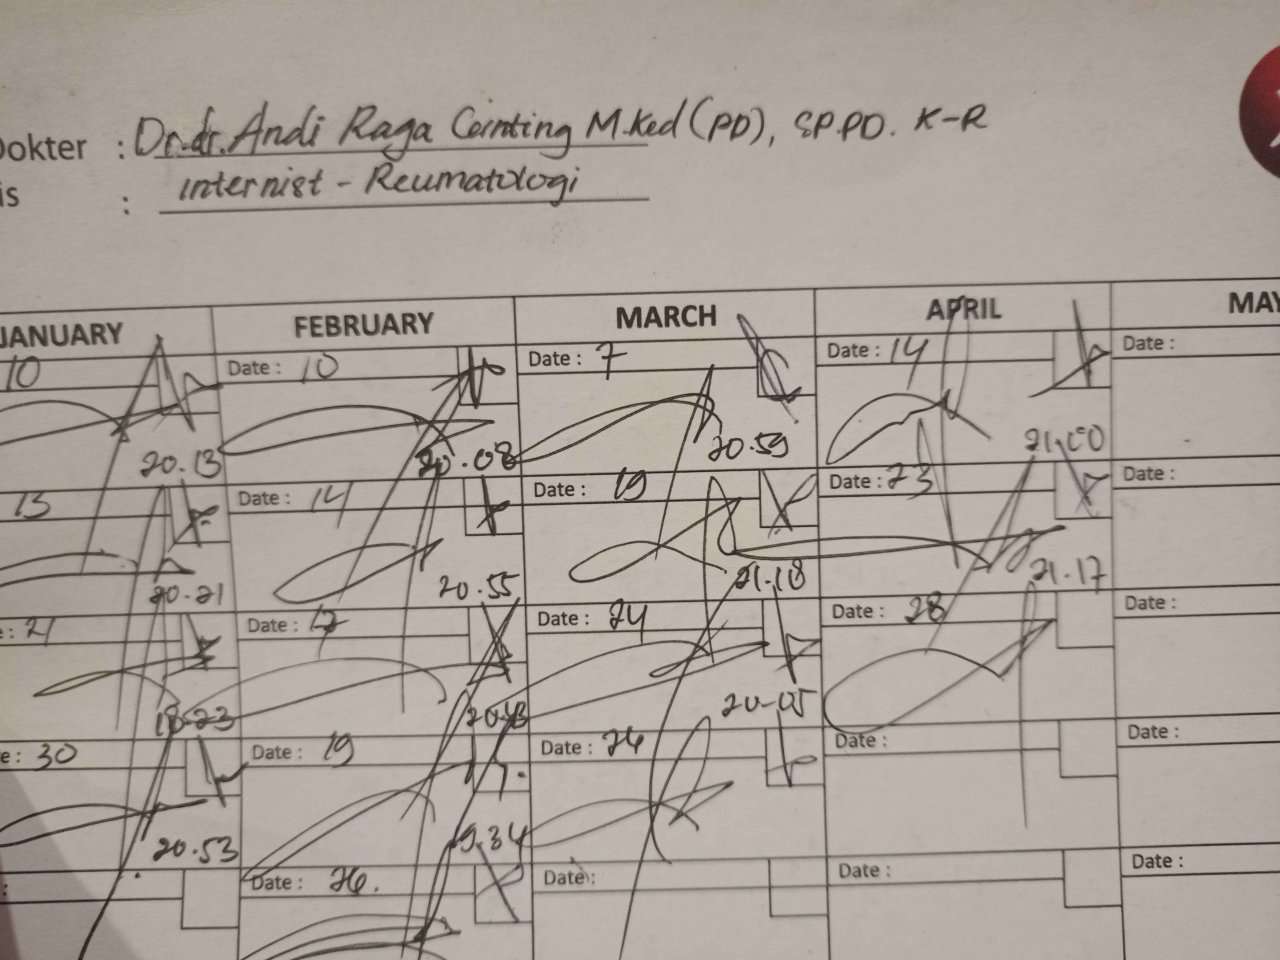 Dokter : Dr.dr. Andi Raga Ginting M.Ked (PD), SP.PD. K-R
is : internist - Reumatologi
JANUARY FEBRUARY MARCH APRIL MAY
10 Date : 10 Date : 7 Date : 14 Date :
20.13 20.08 20.59 21.00
13 Date : 14 Date : 19 Date : 23 Date :
20.21 20.55 21.18 21.17
: 21 Date : 17 Date : 24 Date : 28 Date :
18.23 20-05
e : 30 Date : 19 Date : 26 Date : Date :
20.53 19.34
: Date : 26. Date : Date : Date :